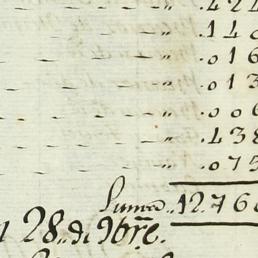 — — — " .424
— — — " .140
— — — " .016
— — — " .013
— — — " .006
— — — " .438
— — — " .075
Suma .12.766
28,, de 9bre.